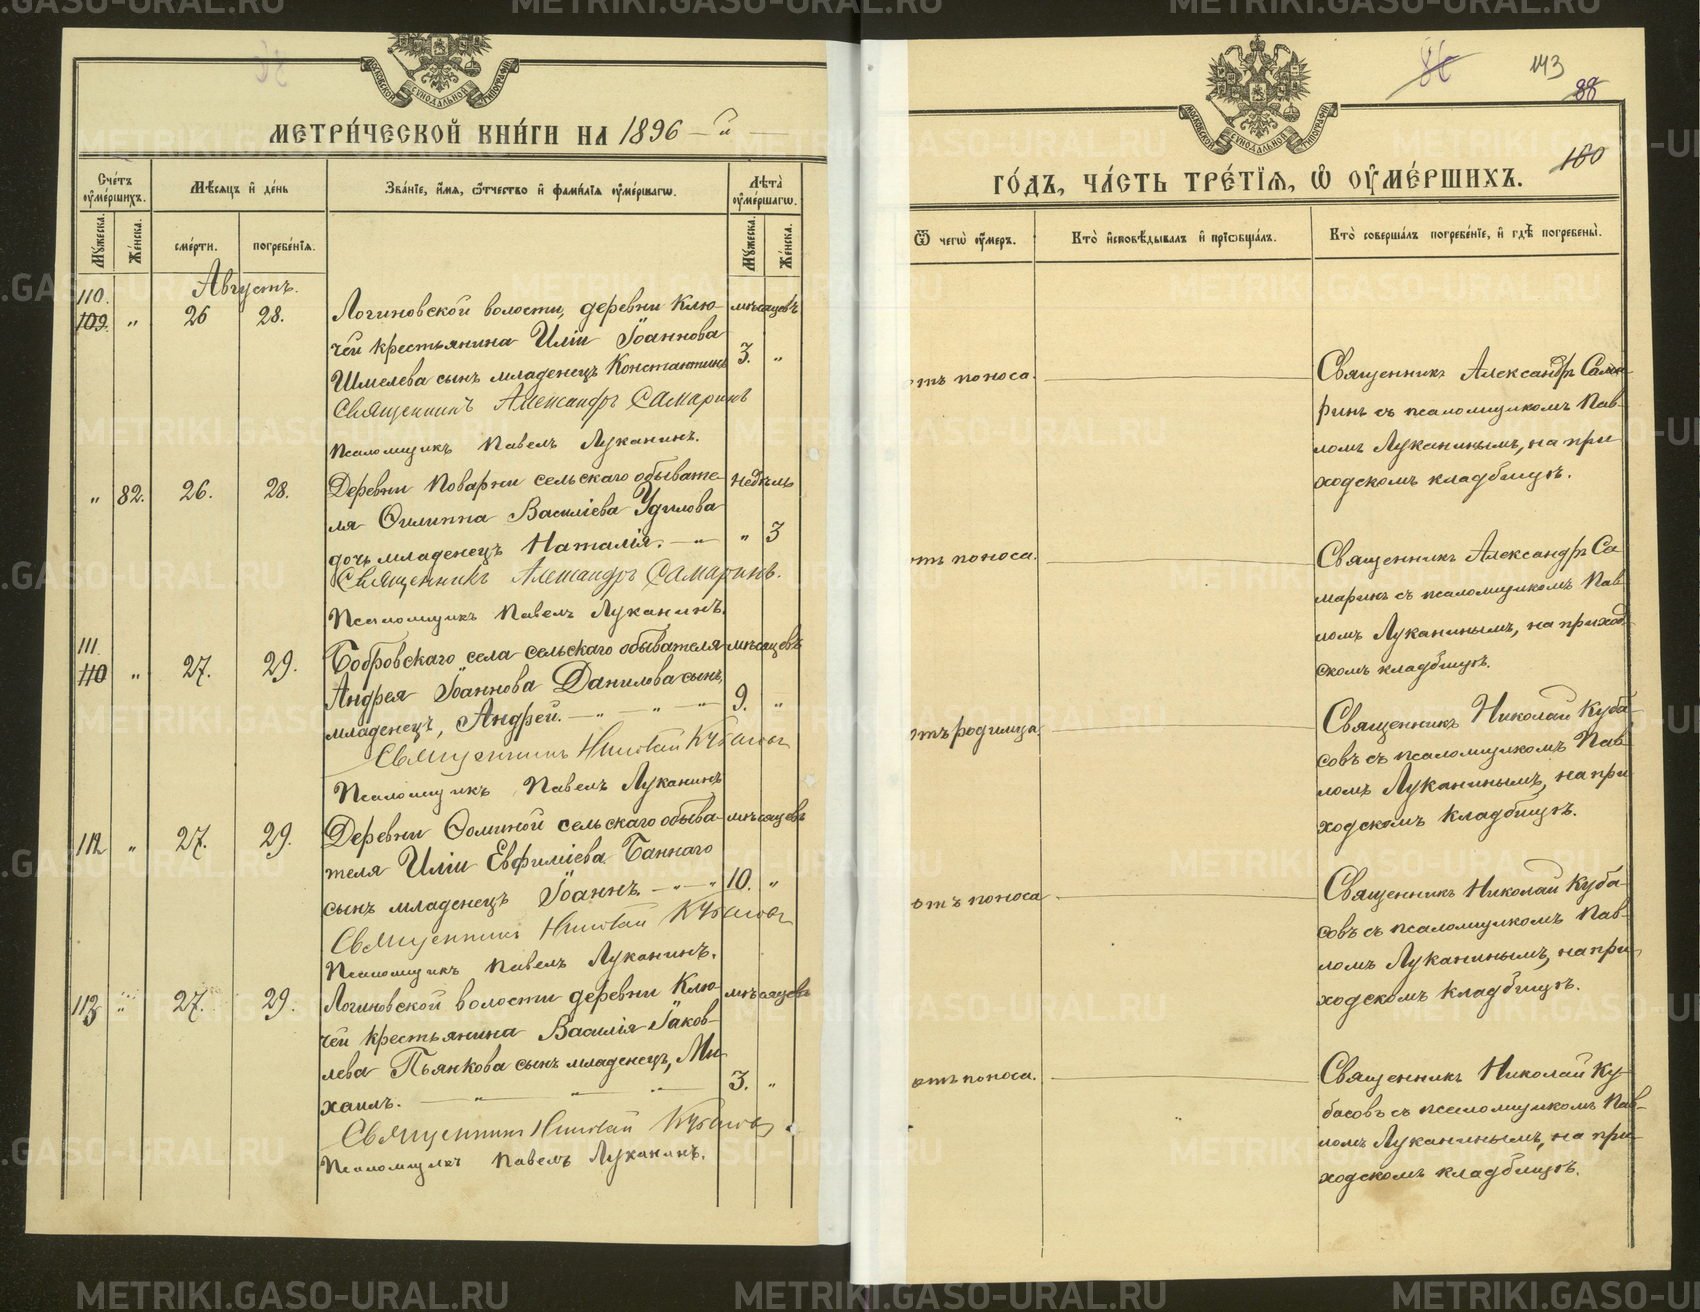 МЕТРИ́ЧЕСКОЙ КНИ́ГИ НА 1896-й
Сче́тъ оу҆ме́ршихъ.
Мѣ́сяцъ и҆ де́нь
Зва́нїе, и҆́мя, ѻ҆́тчество и҆ фами́лїя оу҆ме́ршагѡ.
Лѣта̀ оу҆ме́ршагѡ.
Мꙋ́жеска.
Же́нска.
сме́рти.
погребе́нїя.
Мꙋ́жеска.
Же́нска.
Августъ.
110.
109. " 26 28. Логиновской волости, деревни Клю- мѣсяцевъ
чей крестьянина Иліи Іоаннова
Шмелева сынъ младенецъ Константинъ 3. "
Священникъ Александръ Самаринъ
Псаломщикъ Павелъ Луканинъ.
" 82. 26. 28. Деревни Поварни сельскаго обывате- недѣль
ля Филиппа Василіева Удилова
дочь младенецъ Наталія. " 3
Священникъ Александръ Самаринъ.
Псаломщикъ Павелъ Луканинъ.
111.
110 " 27. 29. Бобровскаго села сельскаго обывателя мѣсяцевъ
Андрея Іоаннова Данилова сынъ
младенецъ, Андрей. 9. "
Священникъ Николай Кубасовъ
Псаломщикъ Павелъ Луканинъ
112 " 27. 29. Деревни Фоминой сельскаго обыва- мѣсяцевъ
теля Иліи Евфиміева Баннаго
сынъ младенецъ Іоаннъ. 10. "
Священникъ Николай Кубасовъ
Псаломщикъ Павелъ Луканинъ.
113 " 27. 29. Логиновской волости деревни Клю- мѣсяцевъ
чей крестьянина Василія Іаков-
лева Пьянкова сынъ младенецъ, Ми-
хаилъ. 3. "
Священникъ Николай Кубасовъ
Псаломщикъ Павелъ Луканинъ.
86 143
88
100
ГО́ДЪ, ЧА́СТЬ ТРЕ́ТЇѦ, Ѡ҆ ОУ҆МЕ́РШИХЪ.
Ѿ чегѡ̀ оу҆́меръ.
Кто̀ и҆сповѣ́дывалъ и҆ прїѻбща́лъ.
Кто̀ соверша́лъ погребе́нїе, и҆ гдѣ̀ погребены̀.
отъ поноса. Священникъ Александръ Сама-
ринъ съ псаломщикомъ Пав-
ломъ Луканинымъ, на при-
ходскомъ кладбищѣ.
отъ поноса. Священникъ Александръ Са-
маринъ съ псаломщикомъ Пав-
ломъ Луканинымъ, на приход-
скомъ кладбищѣ.
отъ родимца. Священникъ Николай Куба-
совъ съ псаломщикомъ Пав-
ломъ Луканинымъ, на при-
ходскомъ кладбищѣ.
отъ поноса Священникъ Николай Куба-
совъ съ псаломщикомъ Пав-
ломъ Луканинымъ, на при-
ходскомъ кладбищѣ.
отъ поноса. Священникъ Николай Ку-
басовъ съ псаломщикомъ Пав-
ломъ Луканинымъ, на при-
ходскомъ кладбищѣ.
METRIKI.GASO-URAL.RU